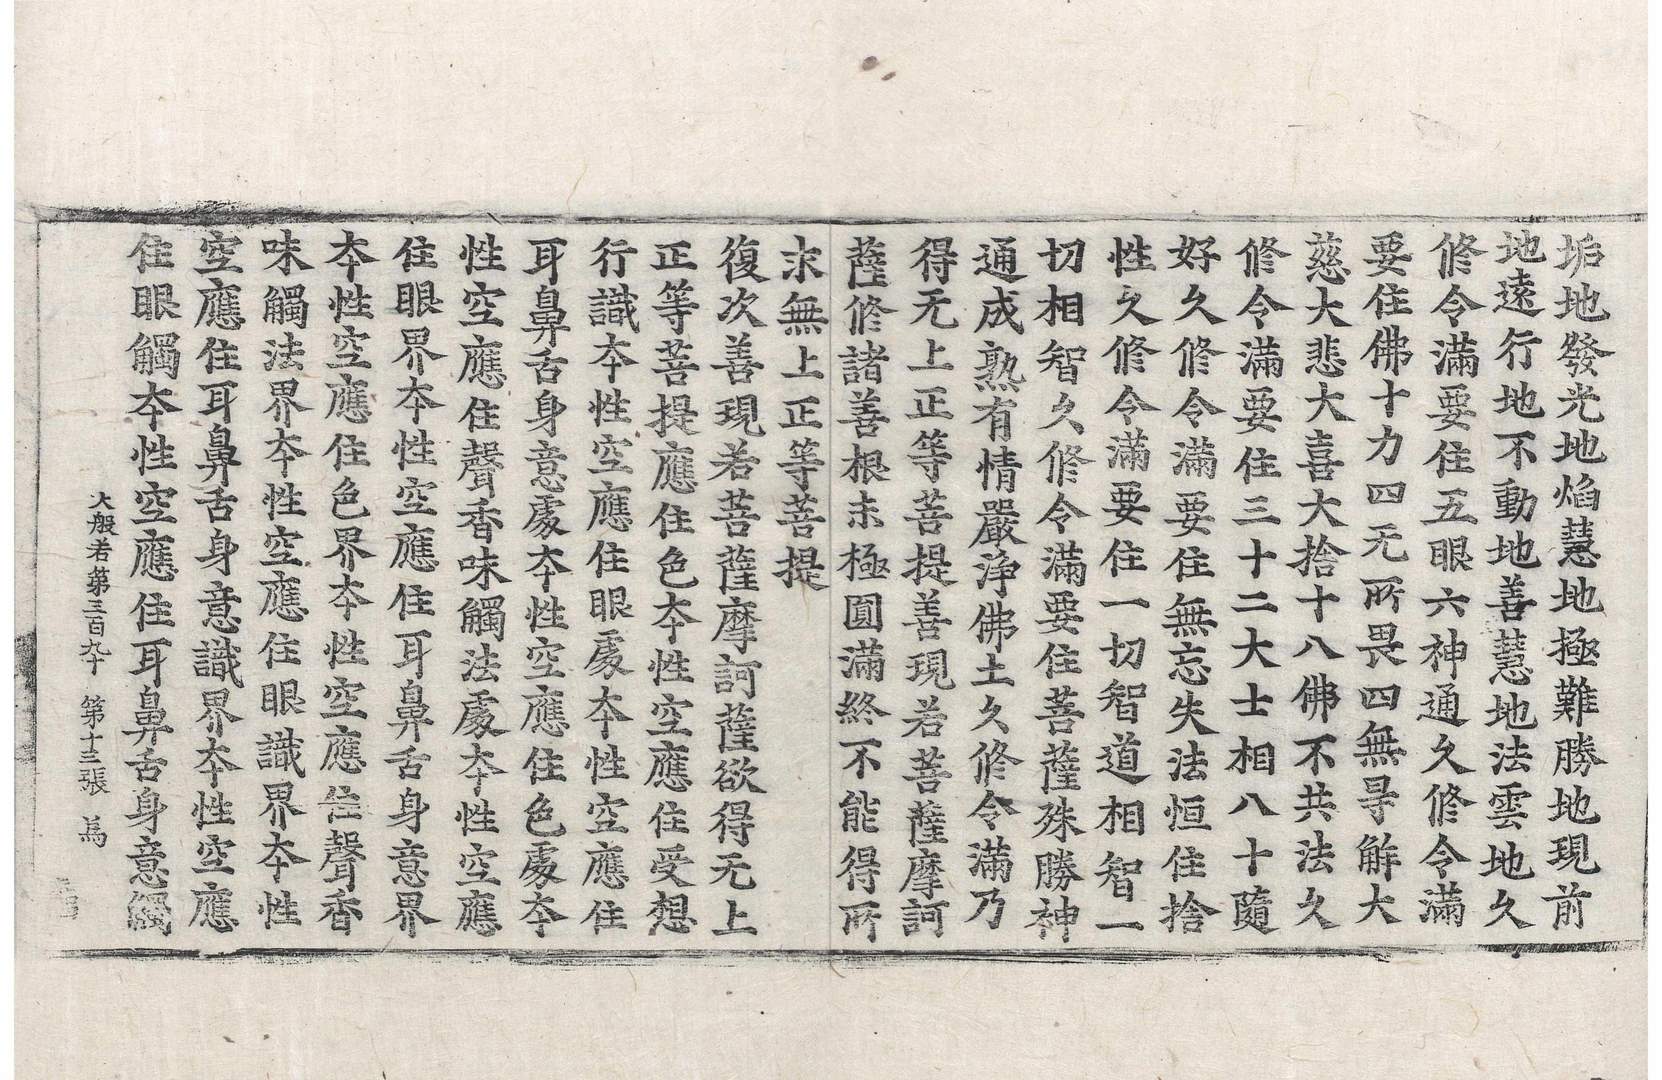 垢地發光地焰慧地極難勝地現前
地遠行地不動地善慧地法雲地久
修令滿要住五眼六神通久修令滿
要住佛十力四无所畏四無㝵解大
慈大悲大喜大捨十八佛不共法久
修令滿要住三十二大士相八十隨
好久修令滿要住無忘失法恒住捨
性久修令滿要住一切智道相智一
切相智久修令滿要住菩薩殊勝神
通成熟有情嚴淨佛土久修令滿乃
得无上正等菩提善現若菩薩摩訶
薩修諸善根未極圓滿終不能得所
求無上正等菩提
復次善現若菩薩摩訶薩欲得无上
正等菩提應住色夲性空應住受想
行識夲性空應住眼處夲性空應住
耳鼻舌身意處夲性空應住色處夲
性空應住聲香味觸法處夲性空應
住眼界夲性空應住耳鼻舌身意界
夲性空應住色界夲性空應住聲香
味觸法界夲性空應住眼識界夲性
空應住耳鼻舌身意識界夲性空應
住眼觸夲性空應住耳鼻舌身意觸
大般若第三百九十 第十三張 為